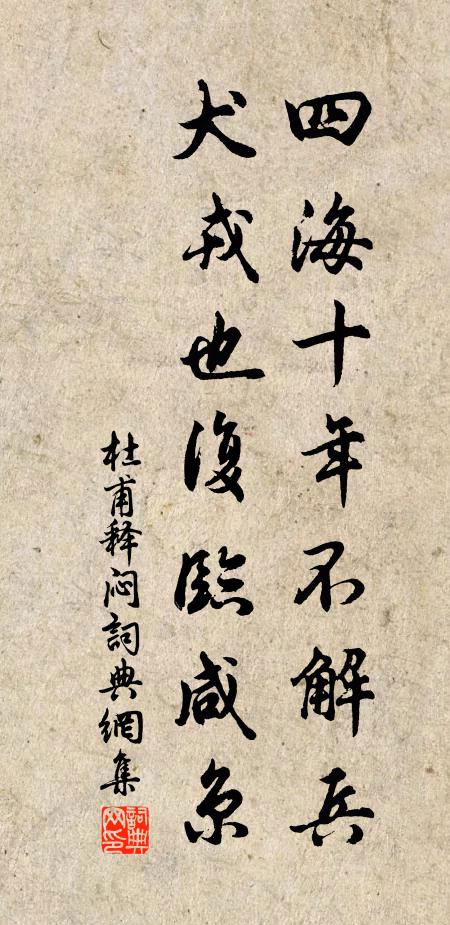 四海十年不解兵
犬戎也復臨咸京
杜甫释闷詞典網集
詞典網印